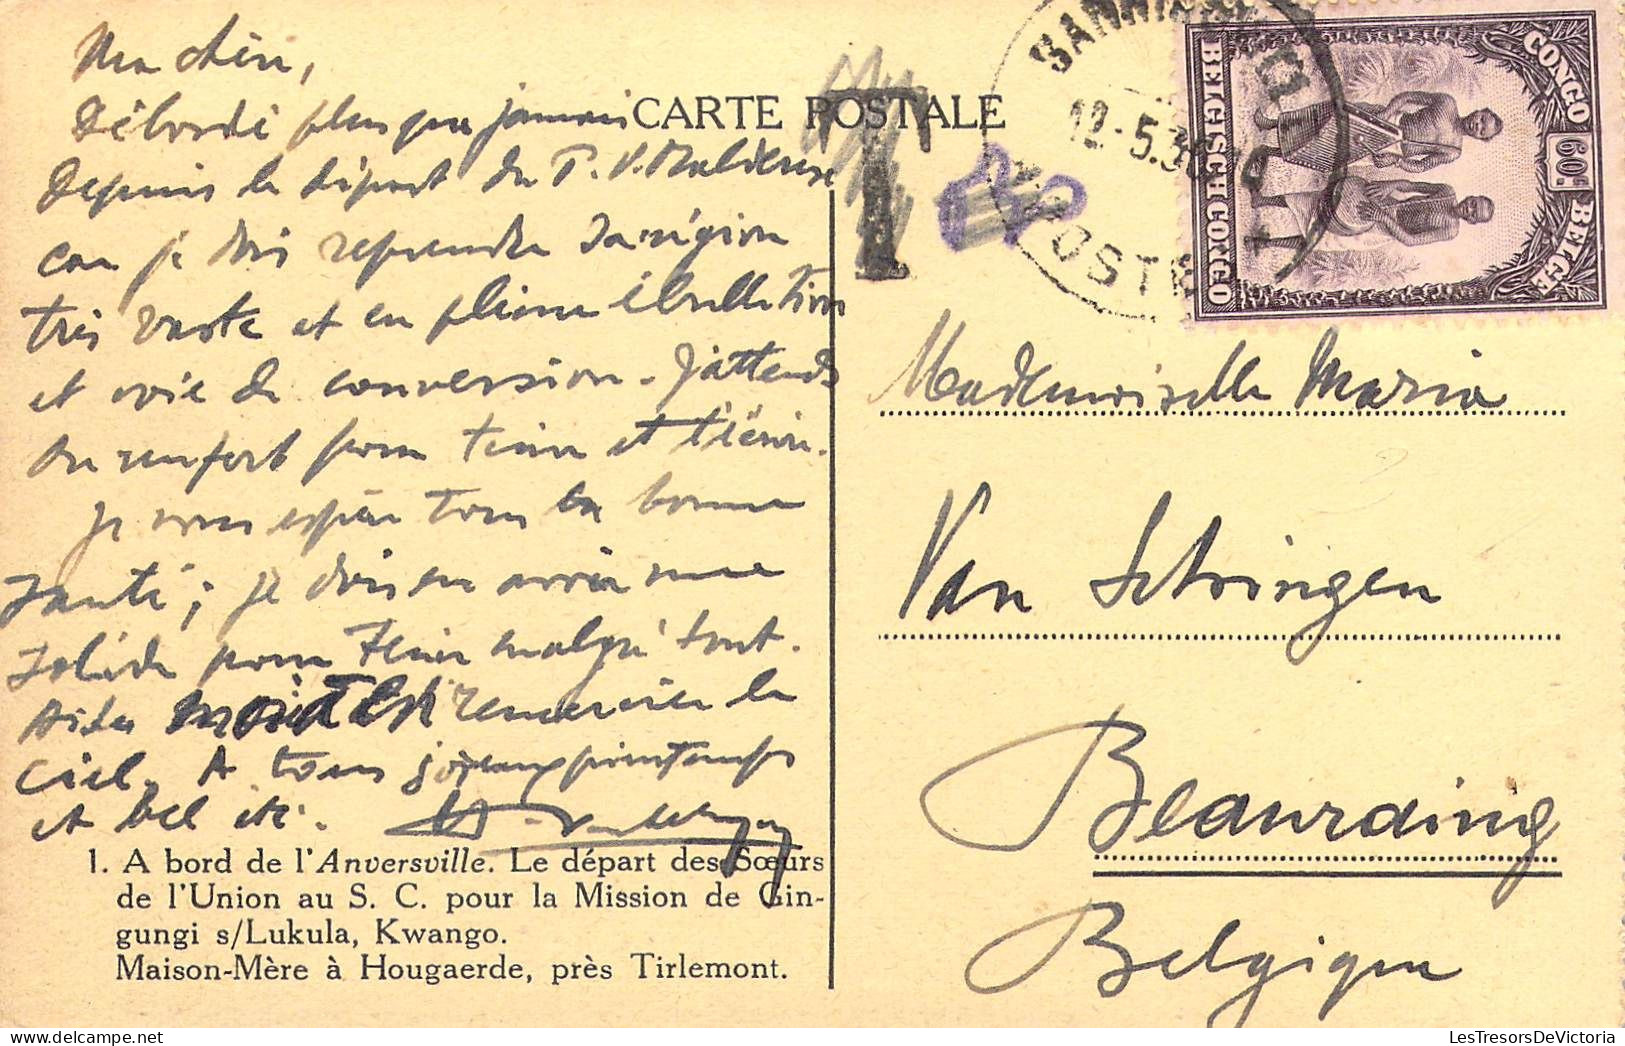 Ma chère,
Débordé plus que jamais
depuis le départ du P. V.
car je dois reprendre sa région
très vaste et en pleine ébullition
et voie de conversion. J'attends
du renfort pour tenir et
Je vous espère tous en bonne
santé; je dois en avoir une
solide pour tenir malgré tout.
remercier le
ciel. A tous joyeux printemps
et bel été.
1. A bord de l'Anversville. Le départ des Sœurs
de l'Union au S. C. pour la Mission de Gin-
gungi s/Lukula, Kwango.
Maison-Mère à Hougaerde, près Tirlemont.
CARTE POSTALE
T
12-5.3
POSTE
BELGISCH CONGO
CONGO BELGE
60c
Mademoiselle Maria
Van Schingen
Beauraing
Belgique
LesTresorsDeVictoria